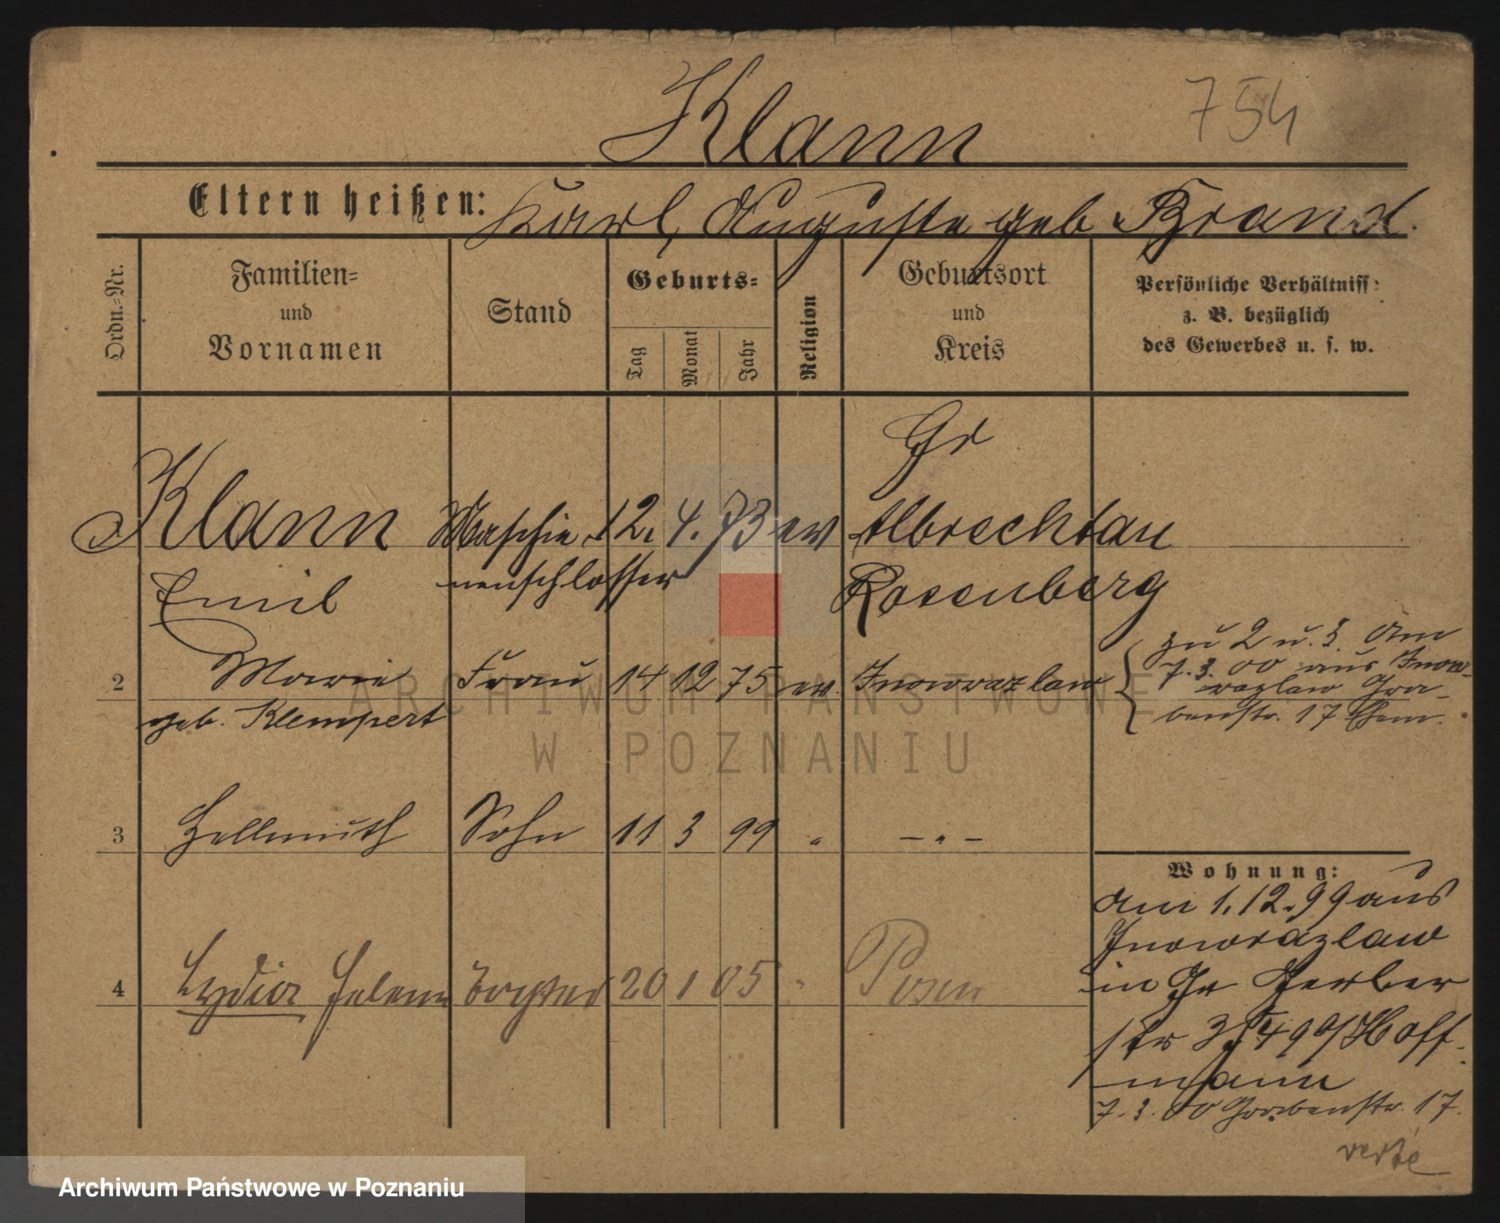 Klann 754
Eltern heißen: Karl, Auguste geb. Brand.
Ordn.=Nr.
Familien=
und
Vornamen
Stand
Geburts=
Tag
Monat
Jahr
Religion
Geburtsort
und
Kreis
Persönliche Verhältniss:
z. B. bezüglich
des Gewerbes u. s. w.
Gr
Klann Maschie 12. 4. 73 ev Albrechtau
Emil nenschlosser Rosenberg
zu 2 u. 3. Am
7. 3. 00 aus Inow-
2 Marie Frau 14 12 75 ev. Inowrazlaw
razlaw Gra-
geb. Klempert
benstr. 17
3 Hellmuth Sohn 11 3 99 " - " -
Wohnung:
am 1. 12. 99 aus
Inowrazlaw
in Gr Gerber
4 Lydia Helene Tochter 20 1 05 " Posen
str Hoff-
mann
7. 3. 00 Grabenstr. 17.
verte
ARCHIWUM PAŃSTWOWE
W POZNANIU
Archiwum Państwowe w Poznaniu